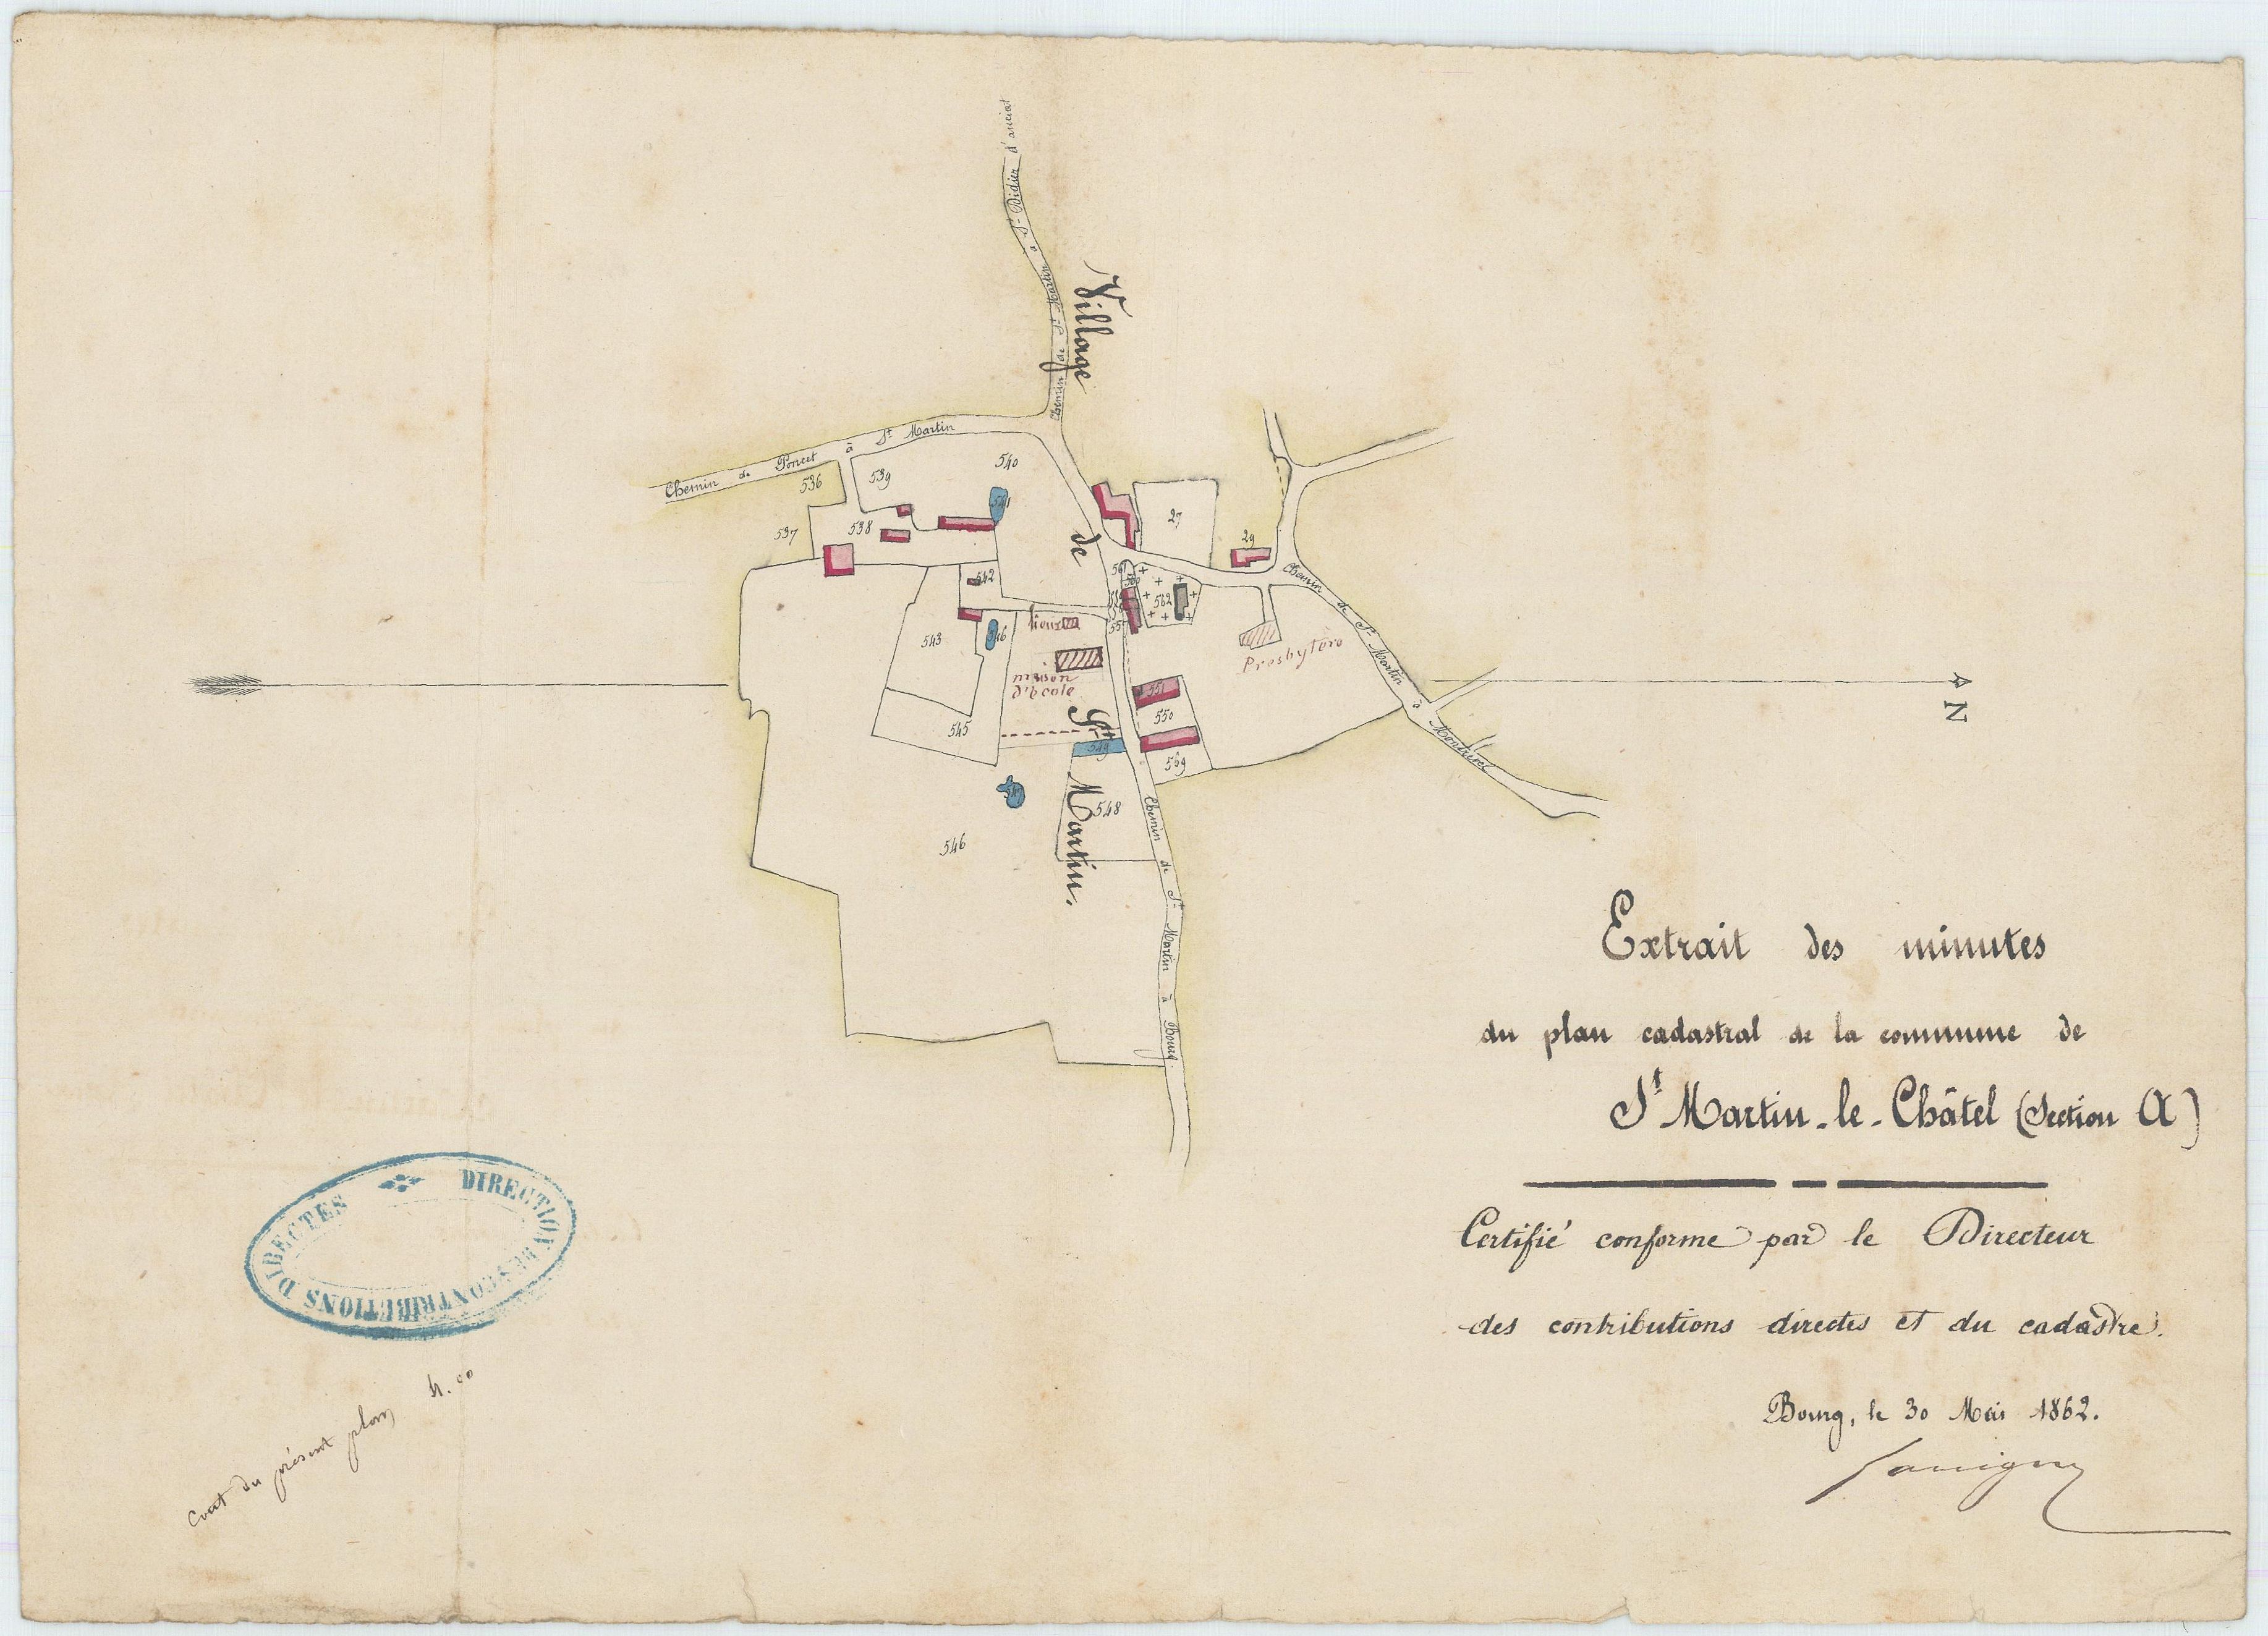 Chemin de St Martin à St Didier d'aussiat
Village de St Martin.
Chemin de Poncet à St Martin
536
539
540
541
537
538
27
29
542
543
545
546
548
549
550
551
569
562
546
lieux
maison
d'école
Presbytère
Chemin de St Martin à Montrevel
Chemin de St Martin à Bourg
N
Extrait des minutes
du plan cadastral de la commune de
St Martin-le-Châtel (Section A)
Certifié conforme par le Directeur
des contributions directes et du cadastre.
Bourg, le 30 Mai 1862.
DIRECTION DES CONTRIBUTIONS DIRECTES
Cout du présent plan 4.00